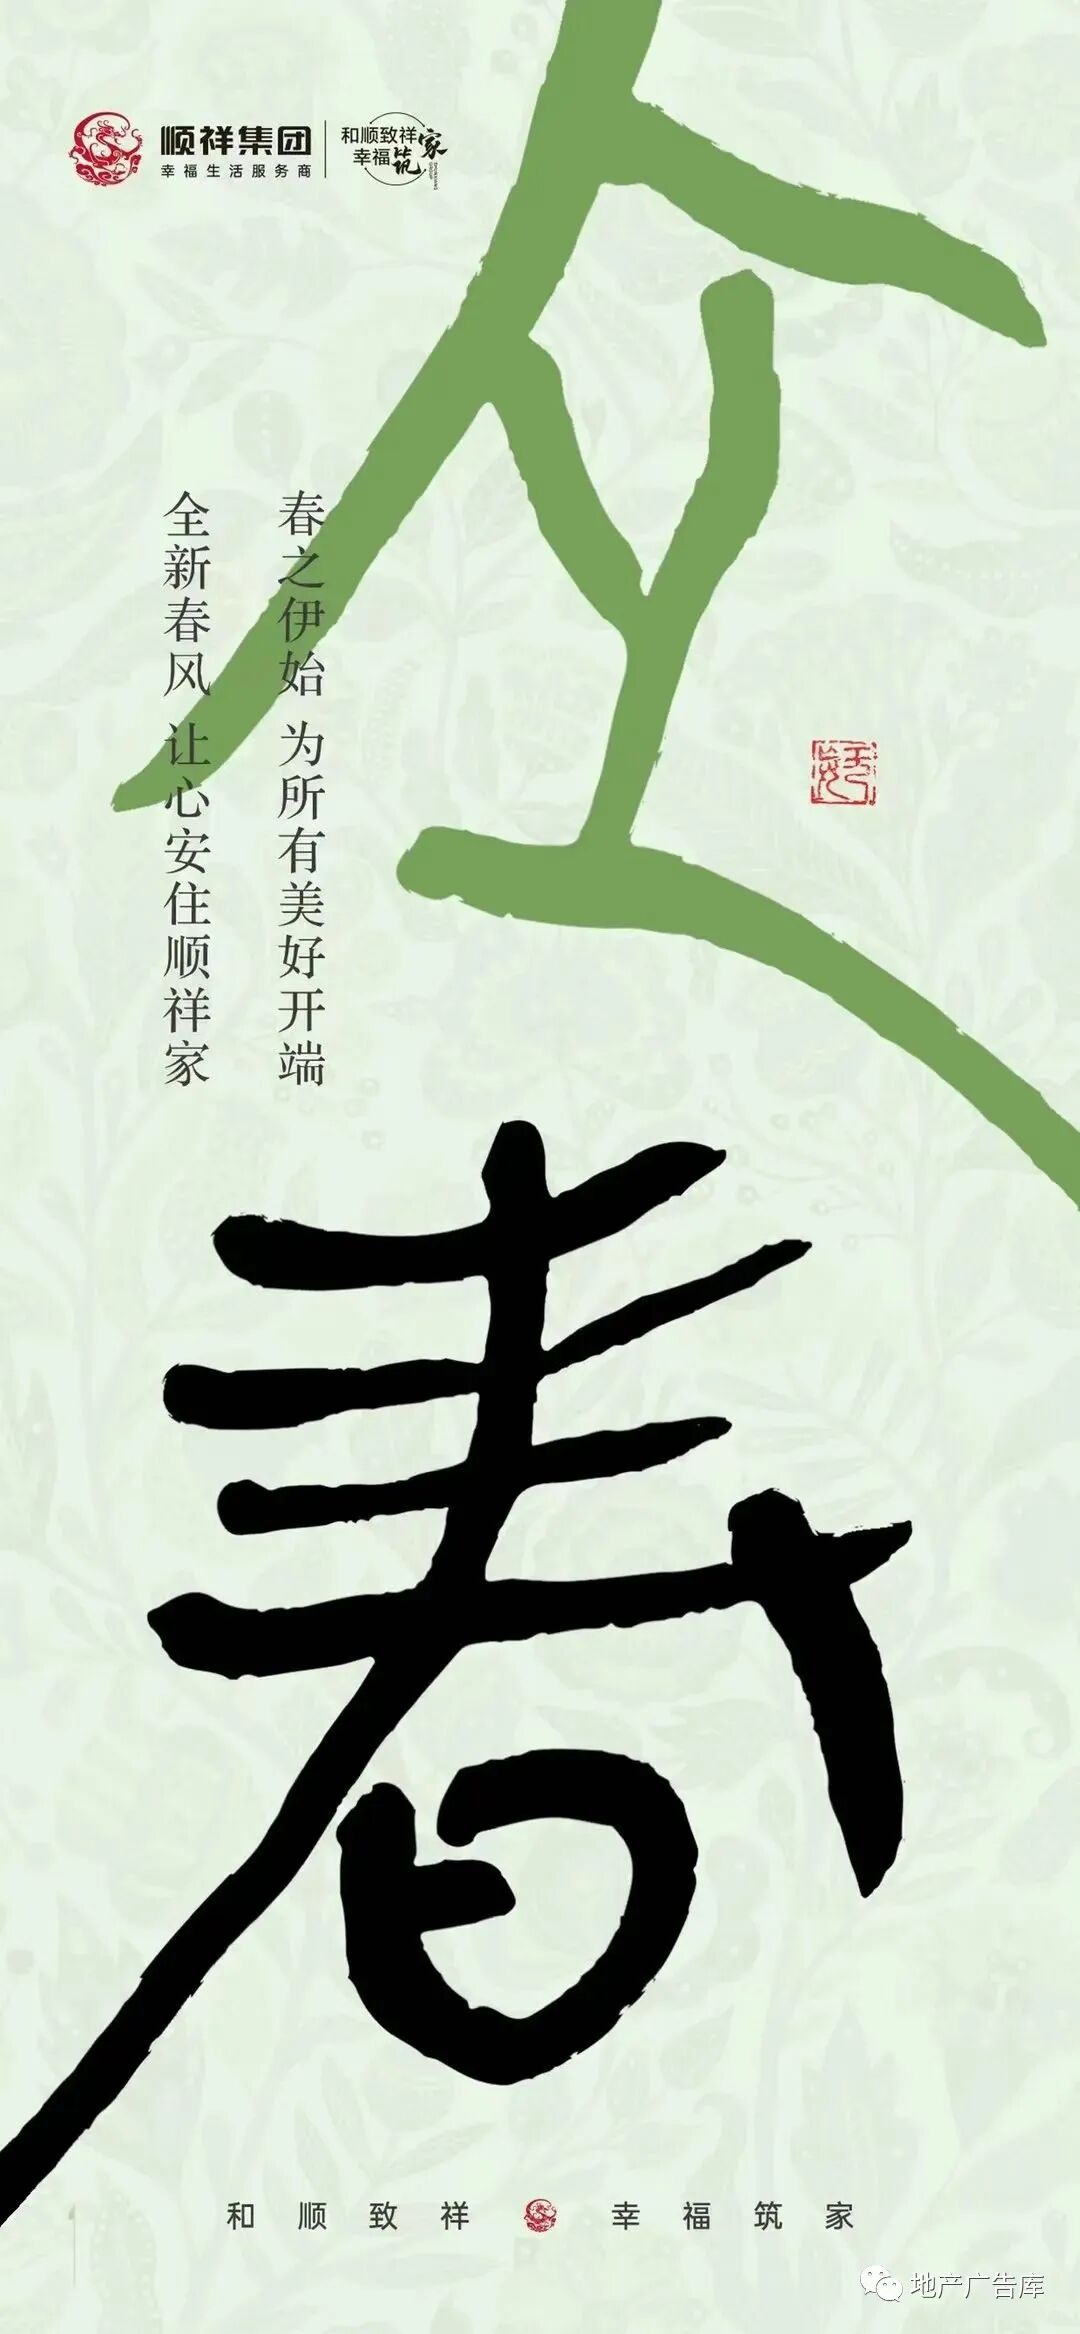 顺祥集团
幸福生活服务商
和顺致祥
幸福筑家
立
春之伊始 为所有美好开端
全新春风 让心安住顺祥家
春
和顺致祥 幸福筑家
地产广告库